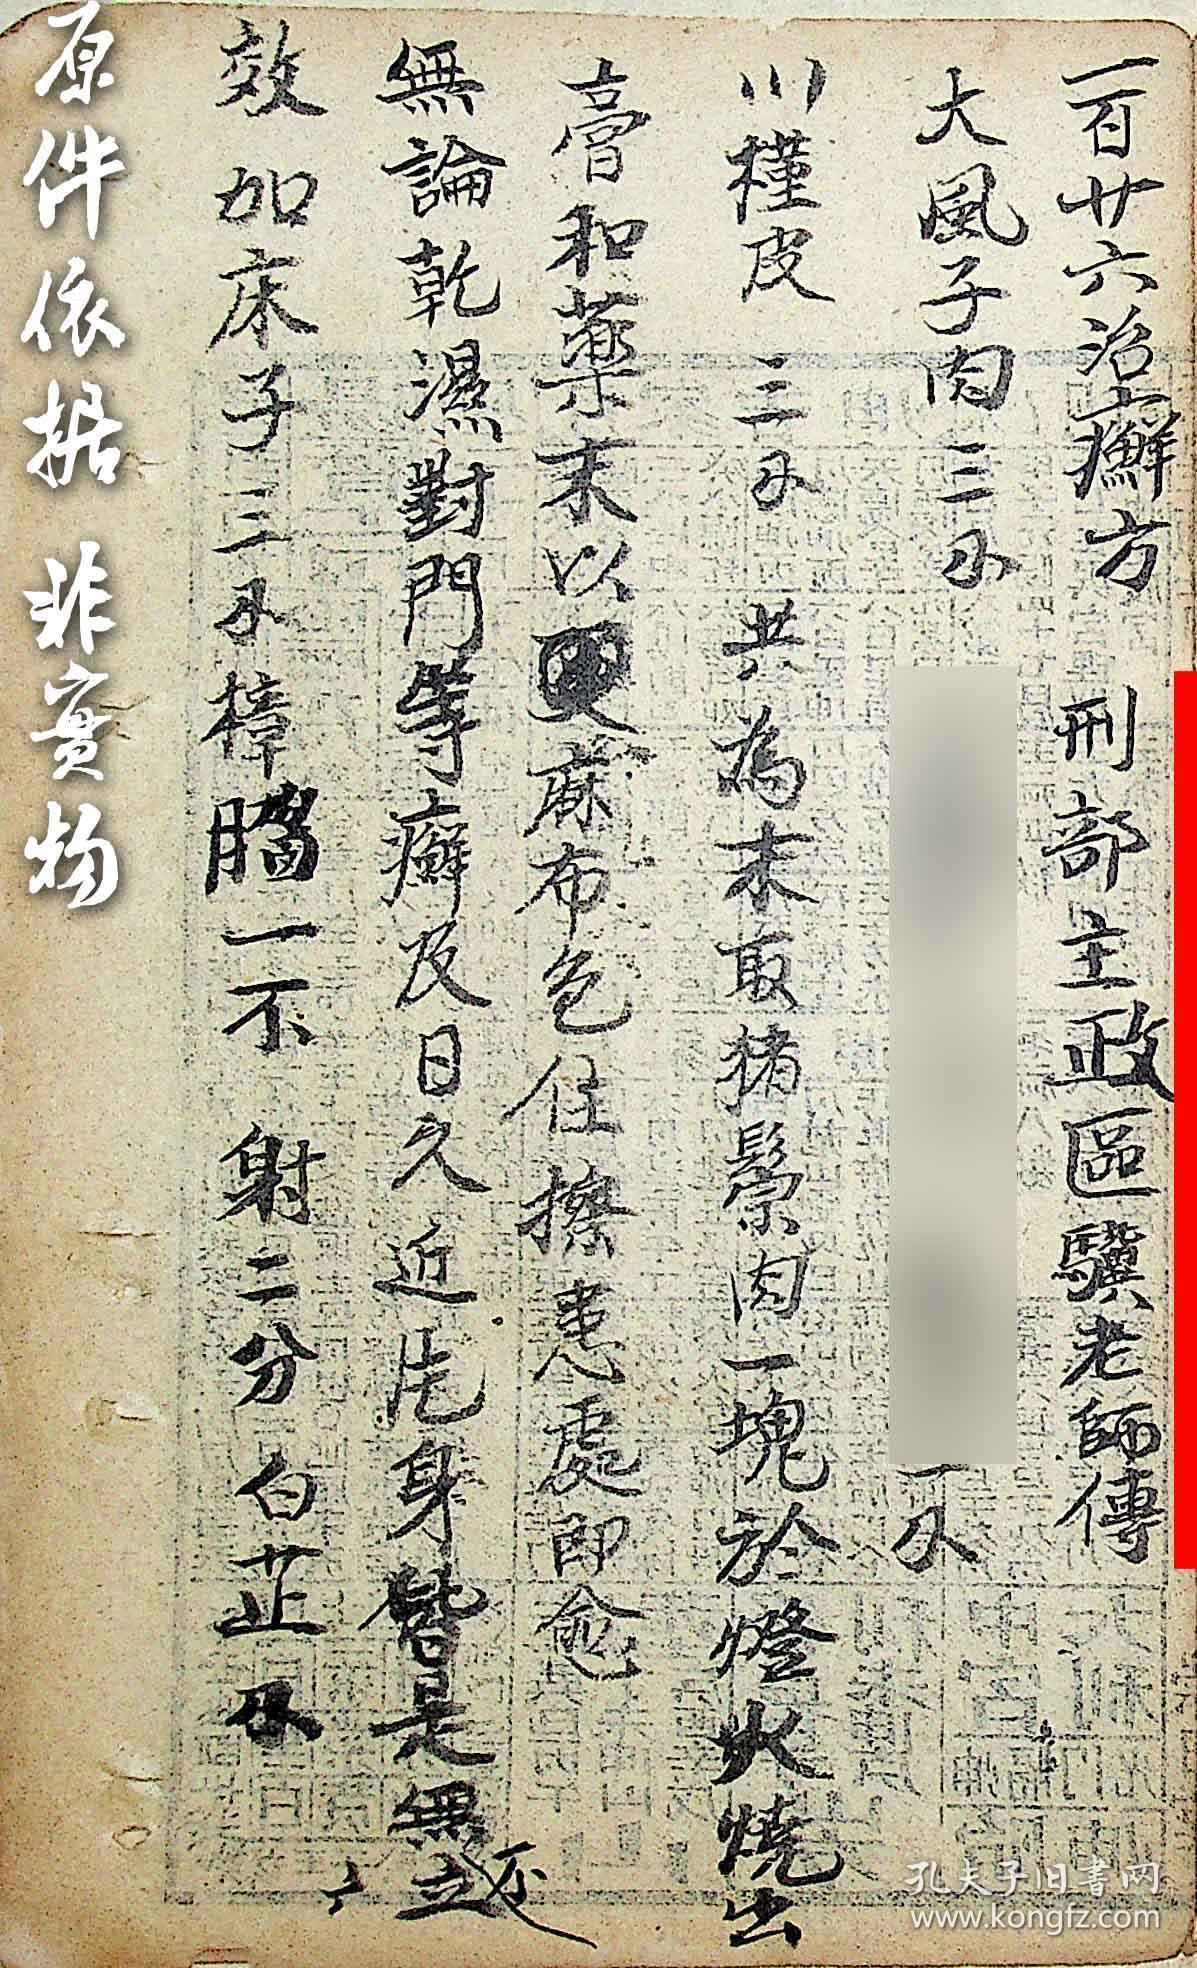 一百廿六治癬方 刑部主政區驥老師傳
大風子肉三
川槿皮 三 共為末取猪鬃肉一塊於燈火燒出
膏和藥末以麻布包住擦患處即愈
無論乾濕對門等癬及日久近皆是無不立
效 加床子三 樟腦一 射二分 白芷
原件依据 非實物
孔夫子旧书网
www.kongfz.com